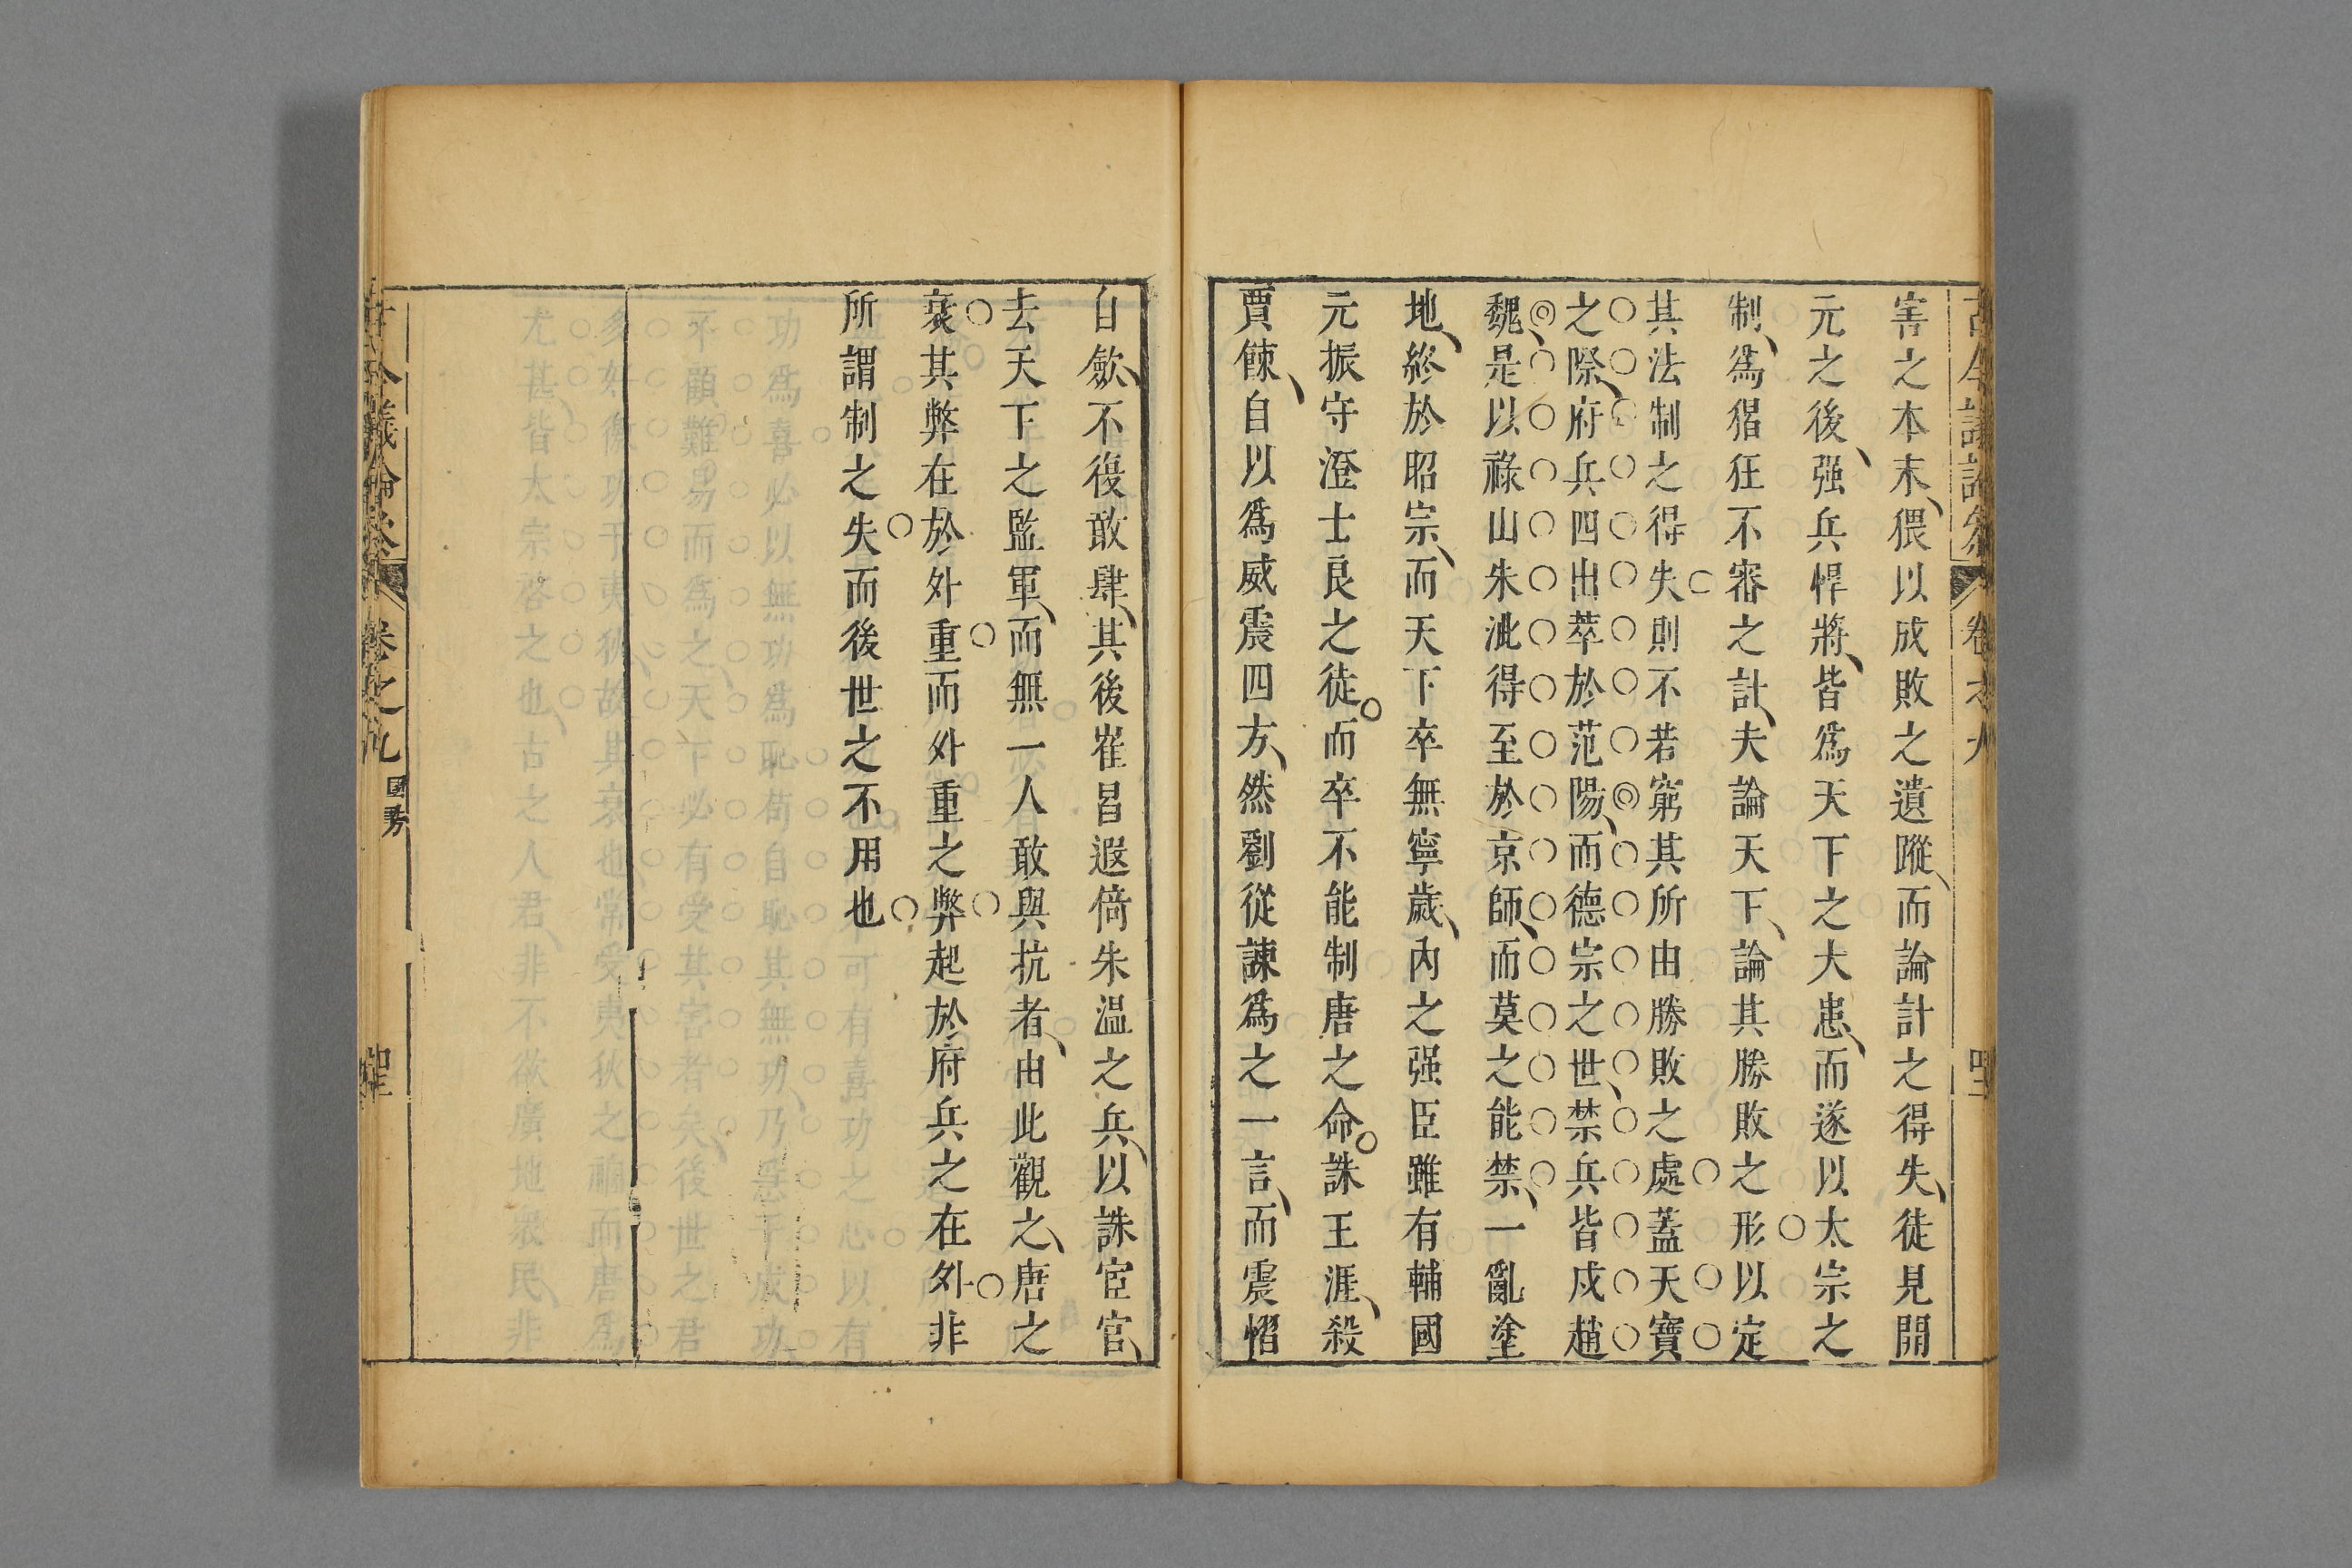 害之本末猥以成敗之遺蹤而論計之得失徒見開
元之後强兵悍將皆爲天下之大患而遂以太宗之
制爲猖狂不審之計夫論天下論其勝敗之形以定
其法制之得失則不若窮其所由勝敗之處蓋天寶
之際府兵四出萃於范陽而德宗之世禁兵皆戍趙
魏是以祿山朱泚得至於京師而莫之能禁一亂塗
地終於昭宗而天下卒無寧歲內之强臣雖有輔國
元振守澄士良之徒而卒不能制唐之命誅王涯殺
賈餗自以爲威震四方然劉從諫爲之一言而震慴
自歛不復敢肆其後崔昌遐倚朱温之兵以誅宦官
去天下之監軍而無一人敢與抗者由此觀之唐之
衰其弊在於外重而外重之弊起於府兵之在外非
所謂制之失而後世之不用也
卷之九